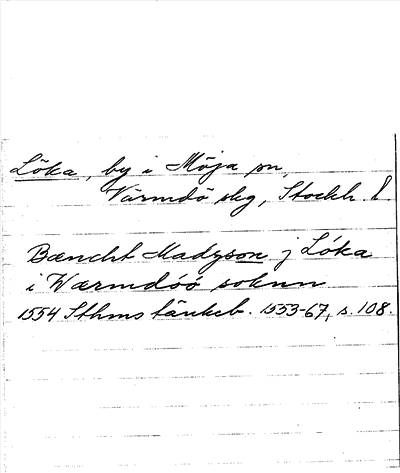 Löka, by i Möja sn,
Värmdö skg, Stockh. l.
Bæncht Madzson j Lóka
i Wærmdóó soknn
1554 Sthms tänkeb. 1553-67, s. 108.